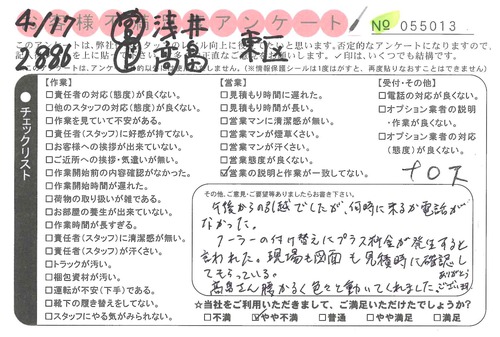 4/17 営 浅井 東一区
客様アンケート
№ 055013
2886 高畠
【作業】
□責任者の対応(態度)が良くない。
□他のスタッフの対応(態度)が良くない。
□作業を見ていて不安がある。
□責任者(スタッフ)に好感が持てない。
□お客様への挨拶が出来ていない。
□ご近所への挨拶・気遣いが無い。
□作業開始前の内容確認がなかった。
□作業開始時間が遅れた。
□荷物の取り扱いが雑である。
□お部屋の養生が出来ていない。
□作業時間が長すぎる。
□責任者(スタッフ)に清潔感が無い。
□責任者(スタッフ)が汗くさい。
□トラックが汚い。
□梱包資材が汚い。
□運転が不安(下手)である。
□靴下の履き替えをしてない。
□スタッフにやる気がみられない。
【営業】
□見積もり時間に遅れた。
□見積もり時間が長い。
□営業マンに清潔感が無い。
□営業マンが煙草くさい。
□営業マンが汗くさい。
□営業態度が良くない。
☑営業の説明と作業が一致してない。
【受付・その他】
□電話の対応が良くない。
□オプション業者の説明・作業が良くない。
□オプション業者の対応(態度)が良くない。
チェックリスト
その他、ご意見・ご要望等ありましたらお書き下さい。
午後からの引越でしたが、何時に来るか電話が
なかった。
クーラーの付け替えにプラス料金が発生すると
言われた。現場も図面も見積時に確認し
てもらっている。
高畠さん腰かるく色々と動いてくれました。ありがとうございます
★当社をご利用いただきまして、ご満足いただけたでしょうか?
□不満 ☑やや不満 □普通 □やや満足 □満足